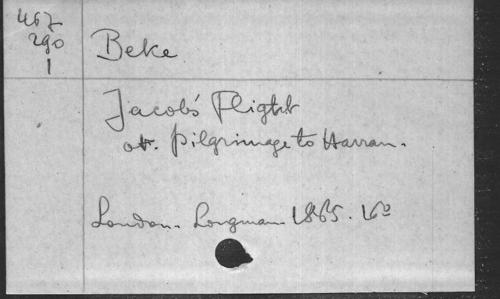 467
290
1
Beke
Jacob's Flight
or. pilgrimage to Harran.
London. Longman 1865. 16º